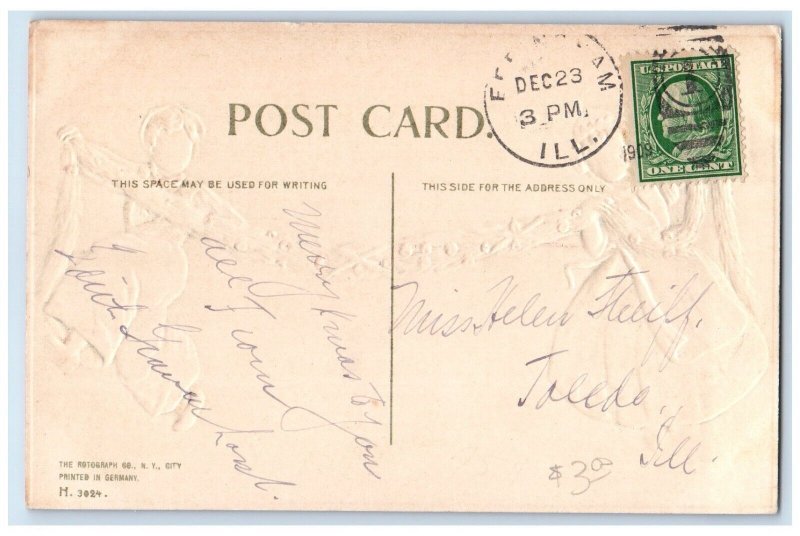 EFFINGHAM
DEC 23
3 PM.
ILL.
1909
U.S. POSTAGE
ONE CENT
POST CARD.
THIS SPACE MAY BE USED FOR WRITING
THIS SIDE FOR THE ADDRESS ONLY
Merry Xmas to you
all From
Miss Helen
Toledo,
Ill.
$3.00
THE ROTOGRAPH CO., N. Y., CITY
PRINTED IN GERMANY.
H. 3024.